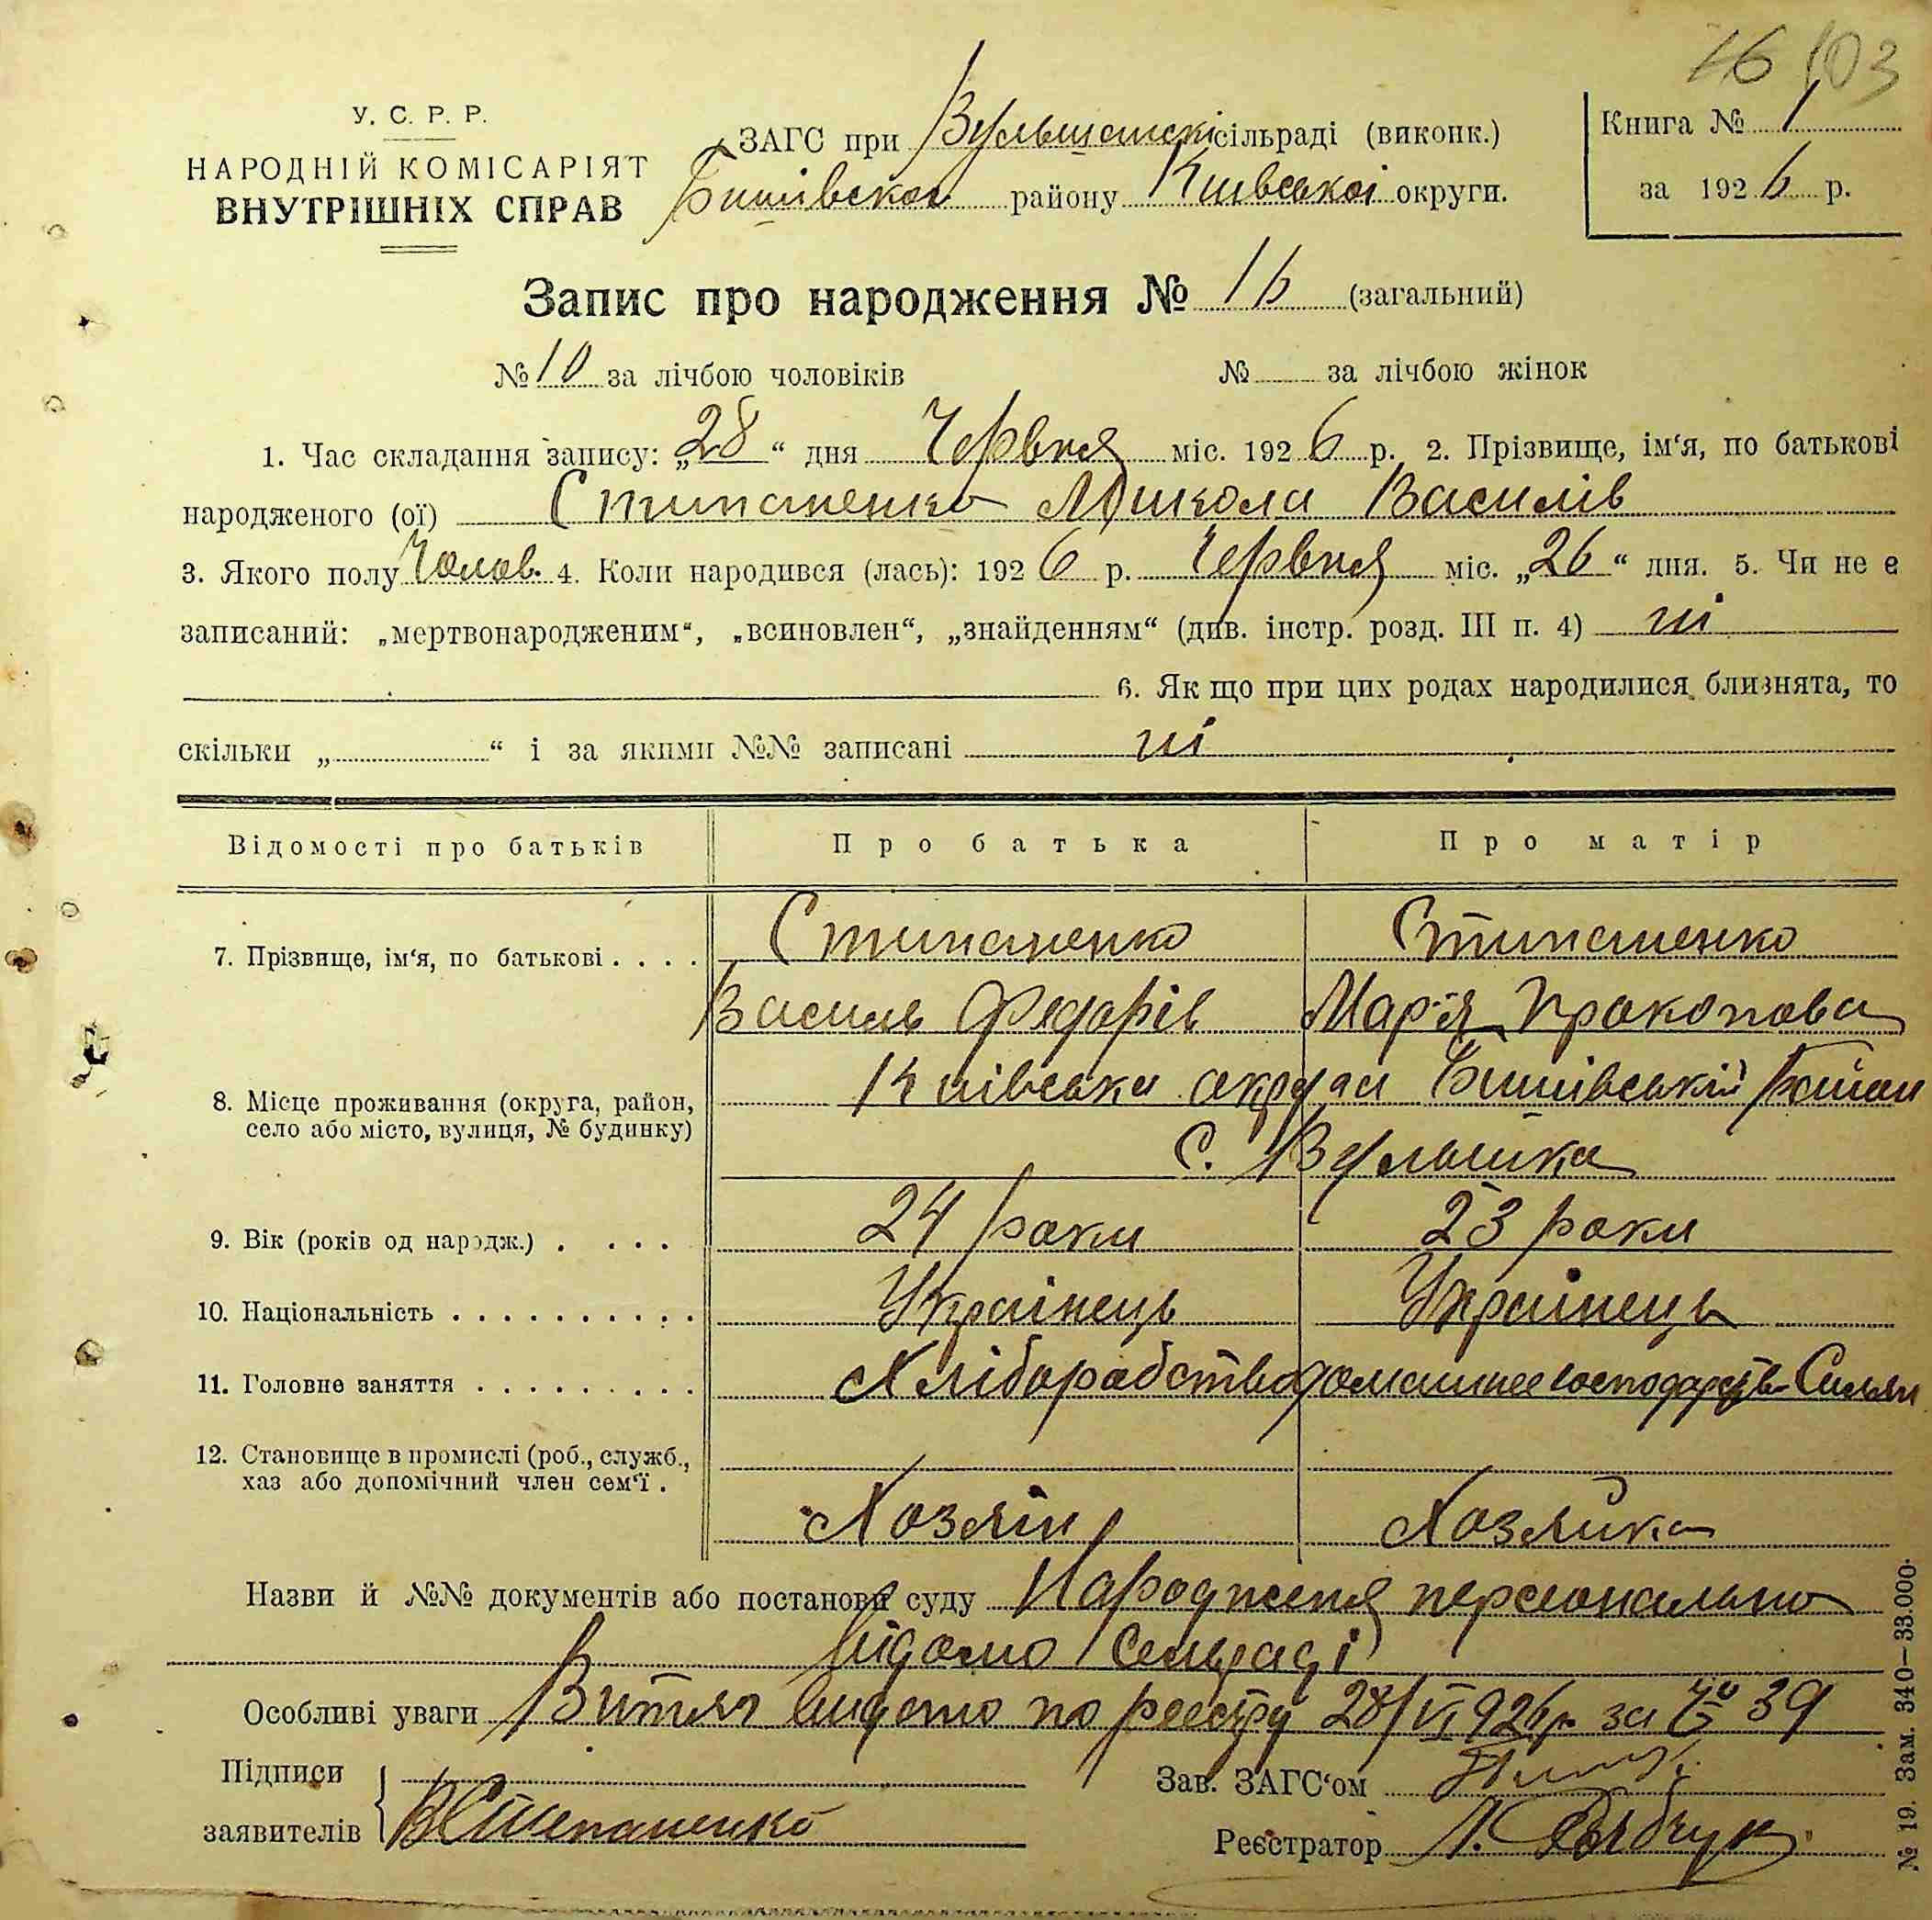 76 103
У. С. Р. Р.
НАРОДНІЙ КОМІСАРІЯТ
ВНУТРІШНІХ СПРАВ
ЗАГС при сільраді (виконк.)
Бишівског району Київської округи.
Книга № 1
за 1926 р.
Запис про народження № 16 (загальний)
№ 10 за лічбою чоловіків № за лічбою жінок
1. Час складання запису: „28“ дня Червня міс. 1926 р. 2. Прізвище, ім‘я, по батькові
народженого (ої) Стипаненко Микола Василів
3. Якого полу Чолов. 4. Коли народився (лась): 1926 р. Червня міс. „26“ дня. 5. Чи не є
записаний: „мертвонародженим“, „всиновлен“, „знайденням“ (див. інстр. розд. III п. 4) ні
6. Як що при цих родах народилися близнята, то
скільки „ “ і за якими №№ записані ні
Відомості про батьків Про батька Про матір
7. Прізвище, ім‘я, по батькові . . . . Стипаненко Стипаненко
Василь Федорів Мар‘я Прокопова
8. Місце проживання (округа, район, Київська округа Бишівський район
село або місто, вулиця, № будинку) С. Вульшка
9. Вік (років од народж.) . . . . 24 роки 23 роки
10. Національність . . . . . . . . . . Українець Українець
11. Головне заняття . . . . . . . . . Хліборобство домашнее господарств
12. Становище в промислі (роб., служб.,
хаз або допомічний член сем‘ї . Хозяїн Хозяйка
Назви й №№ документів або постанови суду Народженя персонально
відомо Сельраді
Особливі уваги Витяг видано по реєстру 28/VI 926 р. за № 39
Підписи
заявителів ВСтепаненко
Зав. ЗАГС‘ом
Реєстратор Л. Рябчук
№ 19. Зам. 340—33.000.